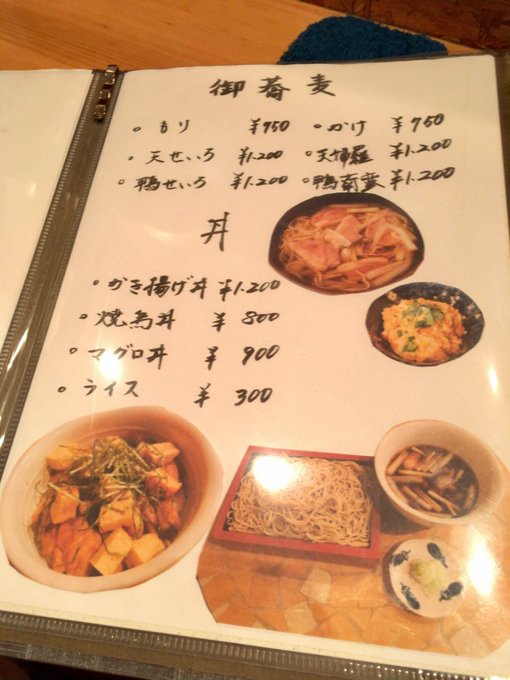 御蕎麦
◦ もり ¥750 ◦ かけ ¥750
◦ 天せいろ ¥1.200 ◦ 天婦羅 ¥1.200
◦ 鴨せいろ ¥1.200 ◦ 鴨南蛮 ¥1.200
丼
◦ かき揚げ丼 ¥1.200
◦ 焼鳥丼 ¥ 800
◦ マグロ丼 ¥ 900
◦ ライス ¥ 300